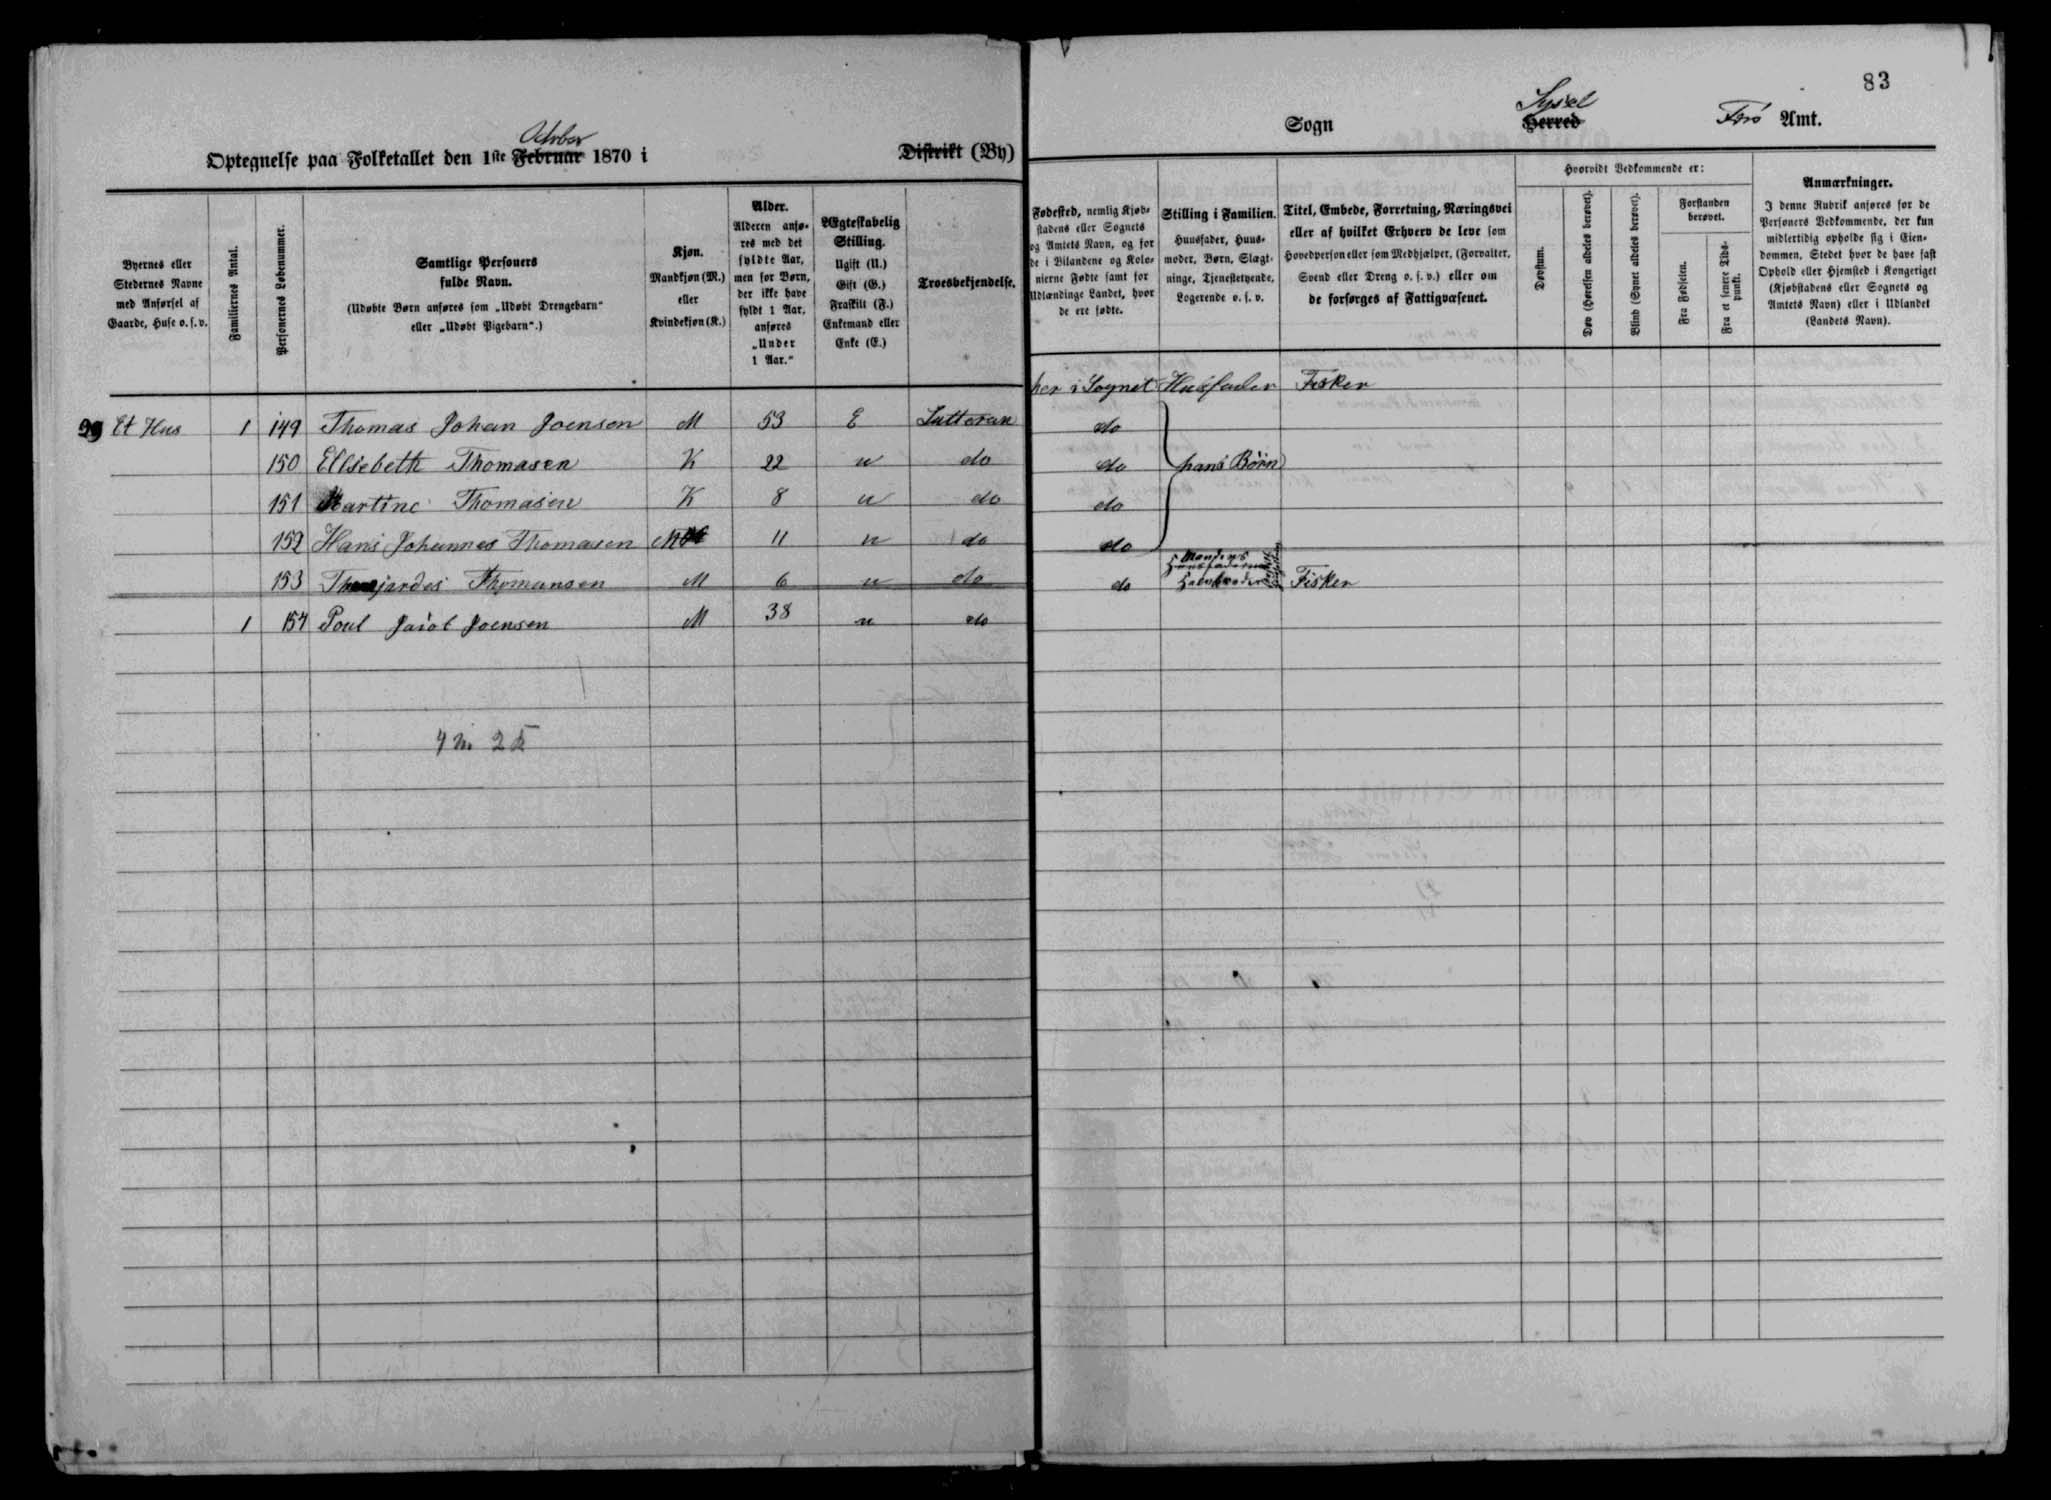 83
Octobr
Optegnelse paa Folketallet den 1ste Februar 1870 i Distrikt (By)
Byernes eller Stedernes Navne med Anførsel af Gaarde, Huse o. s. v.
Familiernes Antal.
Personernes Løbenummer.
Samtlige Personers fulde Navn.
(Udøbte Børn anføres som „Udøbt Drengebarn“ eller „Udøbt Pigebarn“.)
Kjøn.
Mandkjøn (M.) eller Kvindekjøn (K.)
Alder.
Alderen anføres med det fyldte Aar, men for Børn, der ikke have fyldt 1 Aar, anføres „Under 1 Aar.“
Ægteskabelig Stilling.
Ugift (U.) Gift (G.) Fraskilt (F.) Enkemand eller Enke (E.)
Troesbekjendelse.
29 Et Hus 1 149 Thomas Johan Joensen M 53 E Lutteran
150 Ellsebeth Thomasen K 22 u do
151 Martine Thomasen K 8 u do
152 Hans Johannes Thomasen M 11 u do
153 Thomansen M 6 u do
1 154 Poul Jacob Joensen M 38 u do
4 M 2 K
Sysel
Sogn Herred Færø Amt.
Fødested, nemlig Kjøbstadens eller Sognets og Amtets Navn, og for de i Bilandene og Kolonierne Fødte samt for Udlændinge Landet, hvor de ere fødte.
Stilling i Familien.
Huusfader, Huusmoder, Børn, Slægtninge, Tjenestetyende, Logerende o. s. v.
Titel, Embede, Forretning, Næringsvei eller af hvilket Erhverv de leve som Hovedperson eller som Medhjælper, (Forvalter, Svend eller Dreng o. s. v.) eller om de forsørges af Fattigvæsenet.
Hvorvidt Vedkommende er:
Døvstum.
Døv (Hørelsen aldeles berøvet).
Blind (Synet aldeles berøvet).
Forstanden berøvet.
Fra Fødselen.
Fra et senere Tidspunkt.
Anmærkninger.
I denne Rubrik anføres for de Personers Vedkommende, der kun midlertidig opholde sig i Eiendommen, Stedet hvor de have fast Ophold eller Hjemsted i Kongeriget (Kjøbstadens eller Sognets og Amtets Navn) eller i Udlandet (Landets Navn).
her i Sognet Husfader Fisker
do
do hans Børn
do
do
do Mandens Halvbroder Fisker